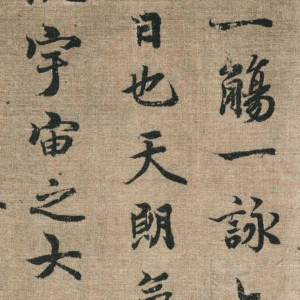 一觴一詠
日也天朗氣
宇宙之大